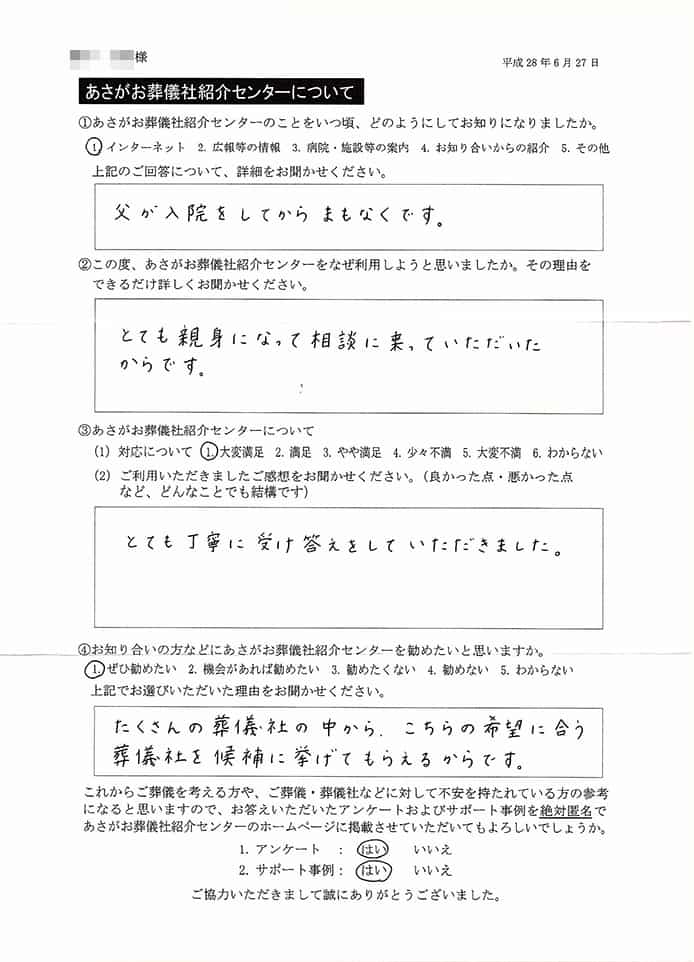 様
平成28年6月27日
あさがお葬儀社紹介センターについて
①あさがお葬儀社紹介センターのことをいつ頃、どのようにしてお知りになりましたか。
1. インターネット 2. 広報等の情報 3. 病院・施設等の案内 4. お知り合いからの紹介 5. その他
上記のご回答について、詳細をお聞かせください。
父が入院をしてからまもなくです。
②この度、あさがお葬儀社紹介センターをなぜ利用しようと思いましたか。その理由を
できるだけ詳しくお聞かせください。
とても親身になって相談に乗っていただいた
からです。
③あさがお葬儀社紹介センターについて
(1) 対応について 1. 大変満足 2. 満足 3. やや満足 4. 少々不満 5. 大変不満 6. わからない
(2) ご利用いただきましたご感想をお聞かせください。（良かった点・悪かった点
など、どんなことでも結構です）
とても丁寧に受け答えをしていただきました。
④お知り合いの方などにあさがお葬儀社紹介センターを勧めたいと思いますか。
1. ぜひ勧めたい 2. 機会があれば勧めたい 3. 勧めたくない 4. 勧めない 5. わからない
上記でお選びいただいた理由をお聞かせください。
たくさんの葬儀社の中から、こちらの希望に合う
葬儀社を候補に挙げてもらえるからです。
これからご葬儀を考える方や、ご葬儀・葬儀社などに対して不安を持たれている方の参考
になると思いますので、お答えいただいたアンケートおよびサポート事例を絶対匿名で
あさがお葬儀社紹介センターのホームページに掲載させていただいてもよろしいでしょうか。
1. アンケート ： はい いいえ
2. サポート事例： はい いいえ
ご協力いただきまして誠にありがとうございました。